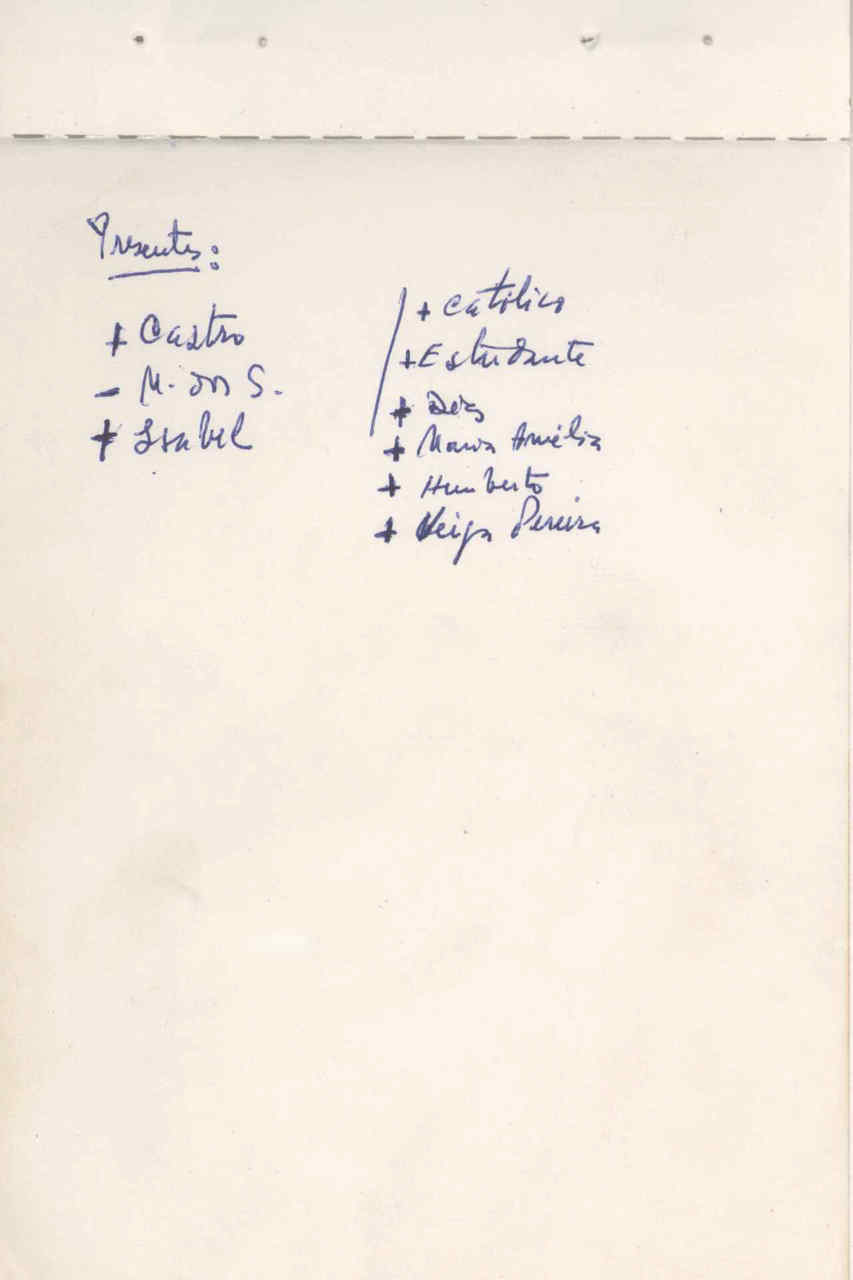 Presentes:
+ Castro
- M. dos S.
+ Isabel
+ Católico
+ Estudante
+
+ Maria Amélia
+ Humberto
+ Veiga Pereira